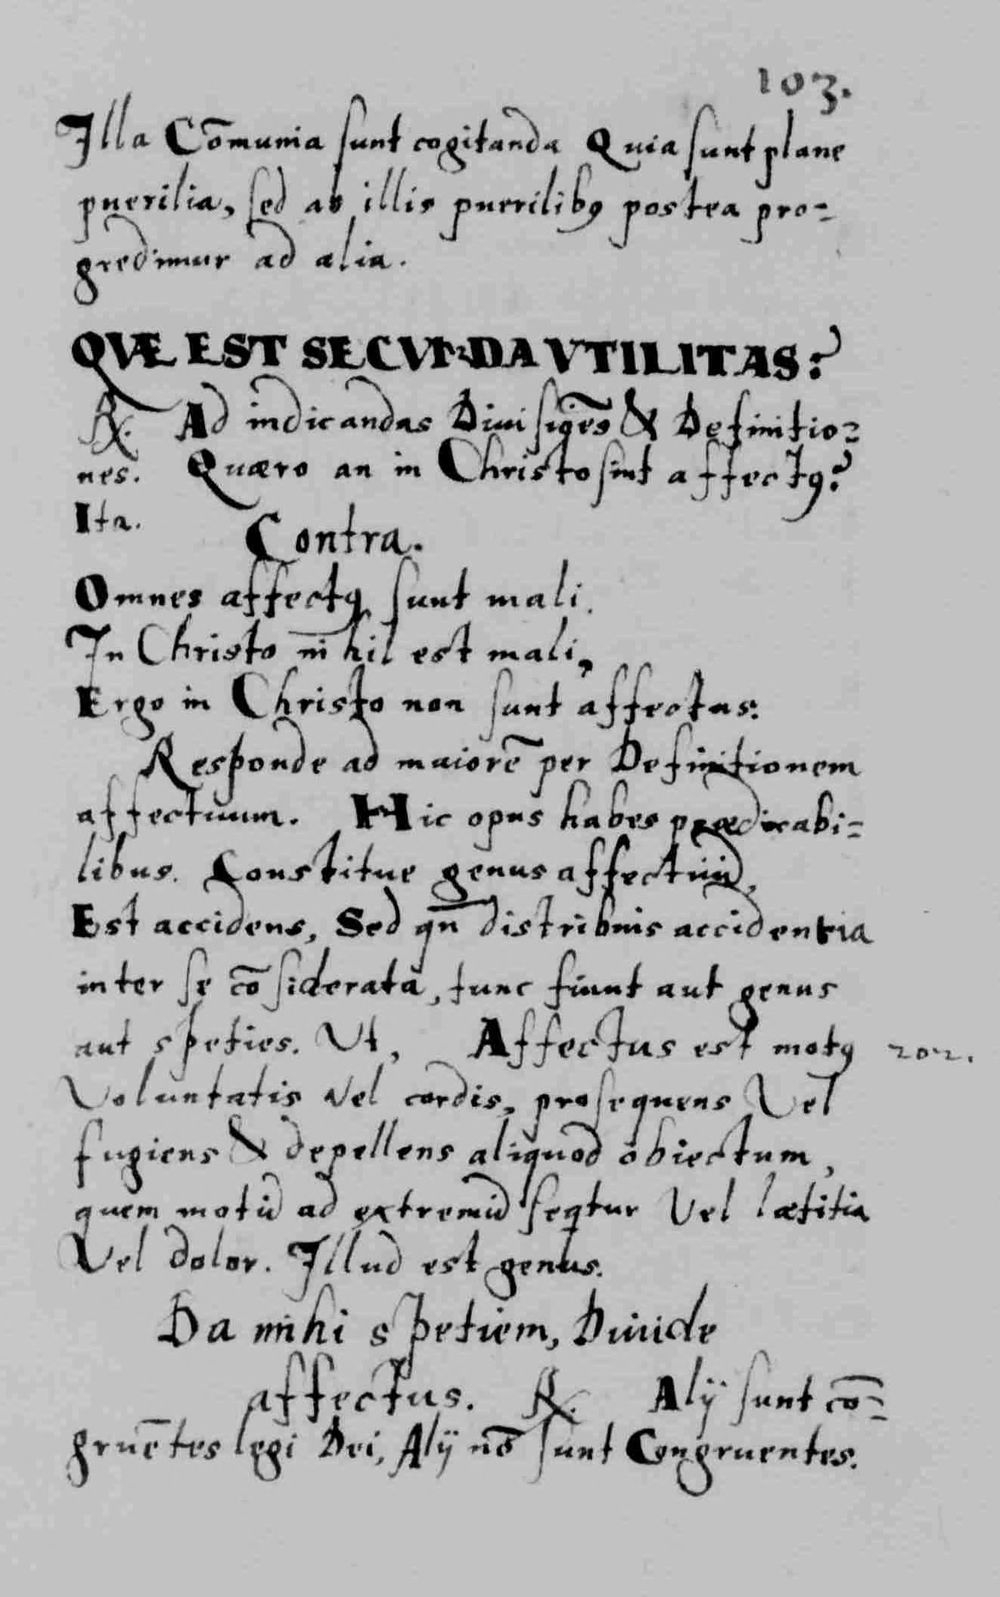 103.
Illa Com̄unia sunt cogitanda Quia sunt plane
puerilia, sed ab illis puerilibꝰ postea pro=
gredimur ad alia.
QVÆ EST SECVNDA VTILITAS?
℞. Ad indicandas Diuisiōes & Definitio=
nes. Quæro an in Christo sint affectꝰ?
Ita. Contra.
Omnes affectꝰ sunt mali.
In Christo nihil est mali,
Ergo in Christo non sunt affectus:
Responde ad maiorē per Definitionem
affectuum. Hic opus habes prædicabi=
libus. Constitue genus affectuū,
Est accidens, Sed qn̄ distribuis accidentia
inter se cōsiderata, tunc fiunt aut genus
aut speties. Ut, Affectus est motꝰ 202.
Voluntatis vel cordis, prosequens Vel
fugiens & depellens aliquod obiectum,
quem motū ad extremū seqtur Vel lætitia
Vel dolor. Illud est genus.
Da mihi spetiem, Diuide
affectus. ℞. Alij sunt cō=
gruētes legi Dei, Alij nō sunt Congruentes.